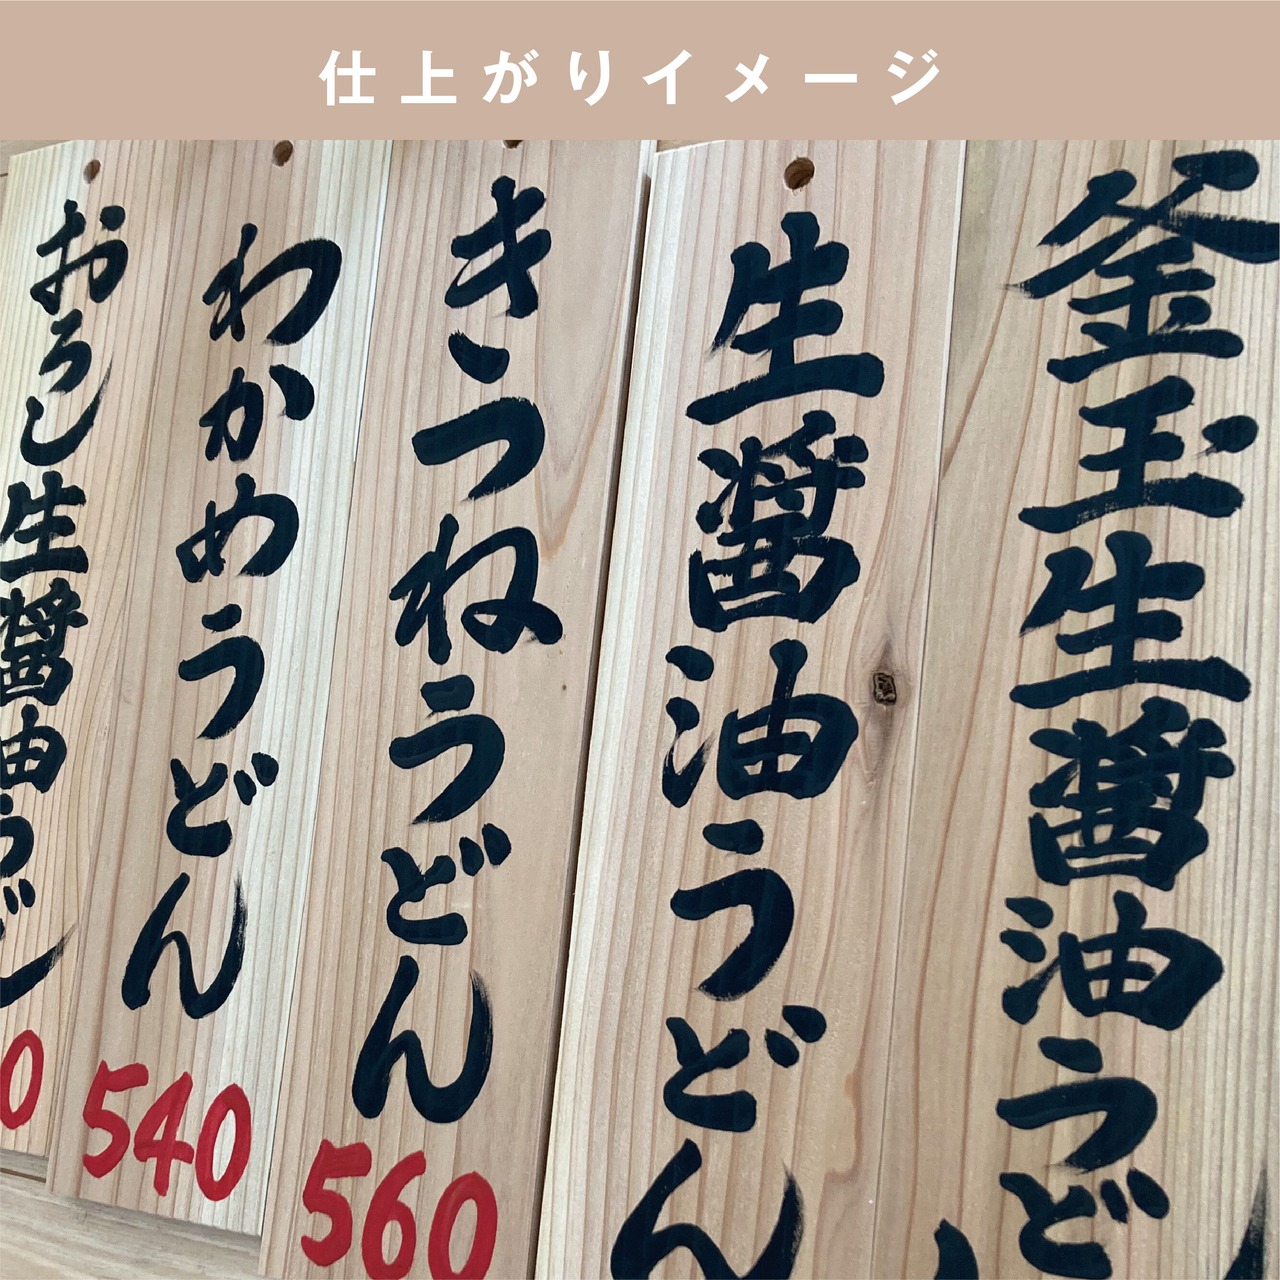 仕上がりイメージ
釜玉生醤油うど
生醤油うどん
きつねうどん
560
わかめうどん
540
おろし生醤油うどん
0